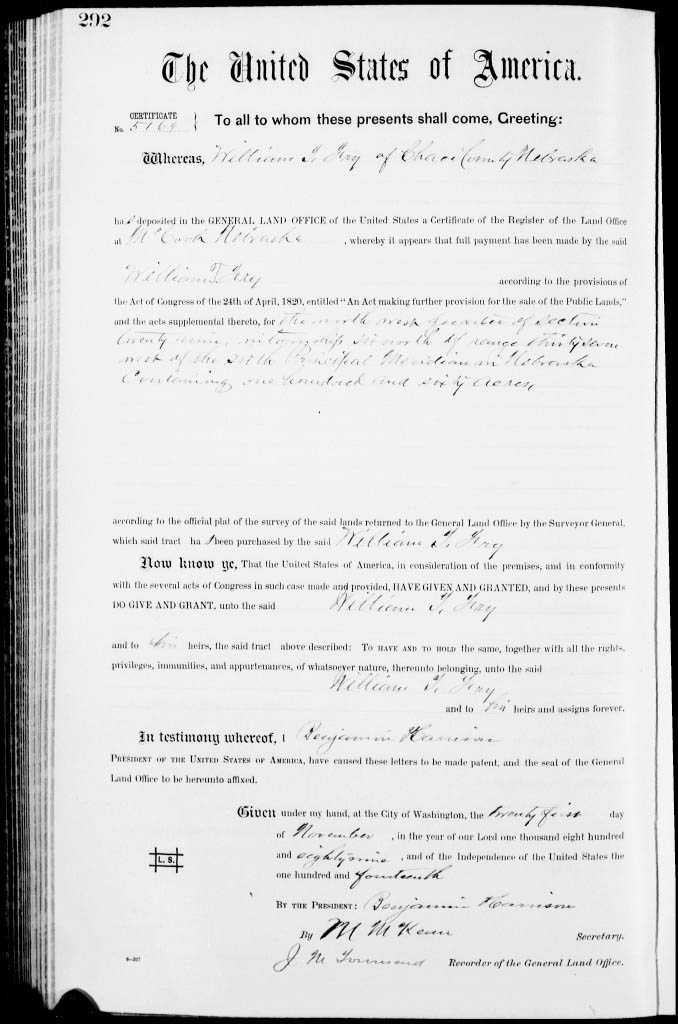 292
The United States of America.
CERTIFICATE
No. 5169
To all to whom these presents shall come, Greeting:
Whereas, William T. Fry of Chase County Nebraska
has deposited in the GENERAL LAND OFFICE of the United States a Certificate of the Register of the Land Office
at McCook Nebraska , whereby it appears that full payment has been made by the said
William T. Fry according to the provisions of
the Act of Congress of the 24th of April, 1820, entitled "An Act making further provision for the sale of the Public Lands,"
and the acts supplemental thereto, for the north west quarter of Section
twenty nine, in township six north of range thirty seven
west of the sixth Principal Meridian in Nebraska
Containing one hundred and sixty acres
according to the official plat of the survey of the said lands returned to the General Land Office by the Surveyor General,
which said tract has been purchased by the said William T. Fry
Now know ye, That the United States of America, in consideration of the premises, and in conformity
with the several acts of Congress in such case made and provided, HAVE GIVEN AND GRANTED, and by these presents
DO GIVE AND GRANT, unto the said William T. Fry
and to his heirs, the said tract above described: TO HAVE AND TO HOLD the same, together with all the rights,
privileges, immunities, and appurtenances, of whatsoever nature, thereunto belonging, unto the said
William T. Fry
and to his heirs and assigns forever.
In testimony whereof, I Benjamin Harrison
PRESIDENT OF THE UNITED STATES OF AMERICA, have caused these letters to be made patent, and the seal of the General
Land Office to be hereunto affixed.
Given under my hand, at the City of Washington, the twenty first day
of November , in the year of our Lord one thousand eight hundred
and eighty nine , and of the Independence of the United States the
one hundred and fourteenth
L. S.
BY THE PRESIDENT: Benjamin Harrison
By M McKean Secretary.
J. M. Townsend Recorder of the General Land Office.